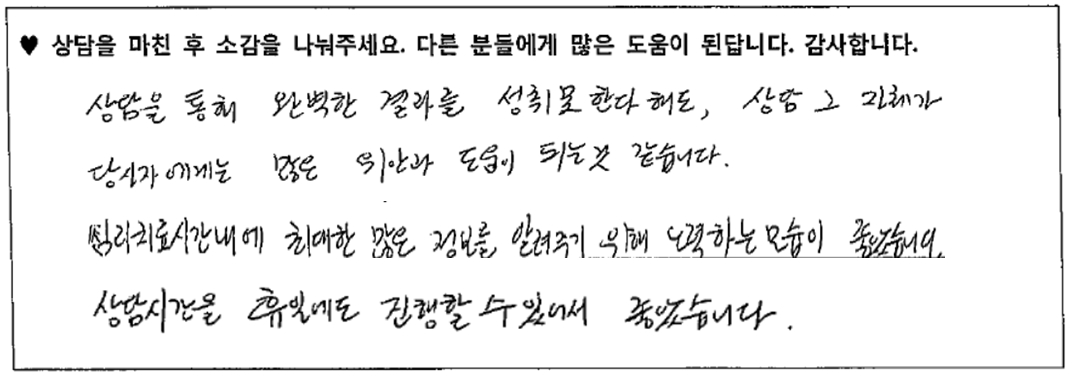 ♥ 상담을 마친 후 소감을 나눠주세요. 다른 분들에게 많은 도움이 된답니다. 감사합니다.
상담을 통해 완벽한 결과를 성취못한다해도, 상담 그 자체가
당사자에게는 많은 위안과 도움이 되는것 같습니다.
심리치료시간내에 최대한 많은 정보를 알려주기 위해 노력하는모습이 좋았습니다.
상담시간을 휴일에도 진행할 수 있어서 좋았습니다.